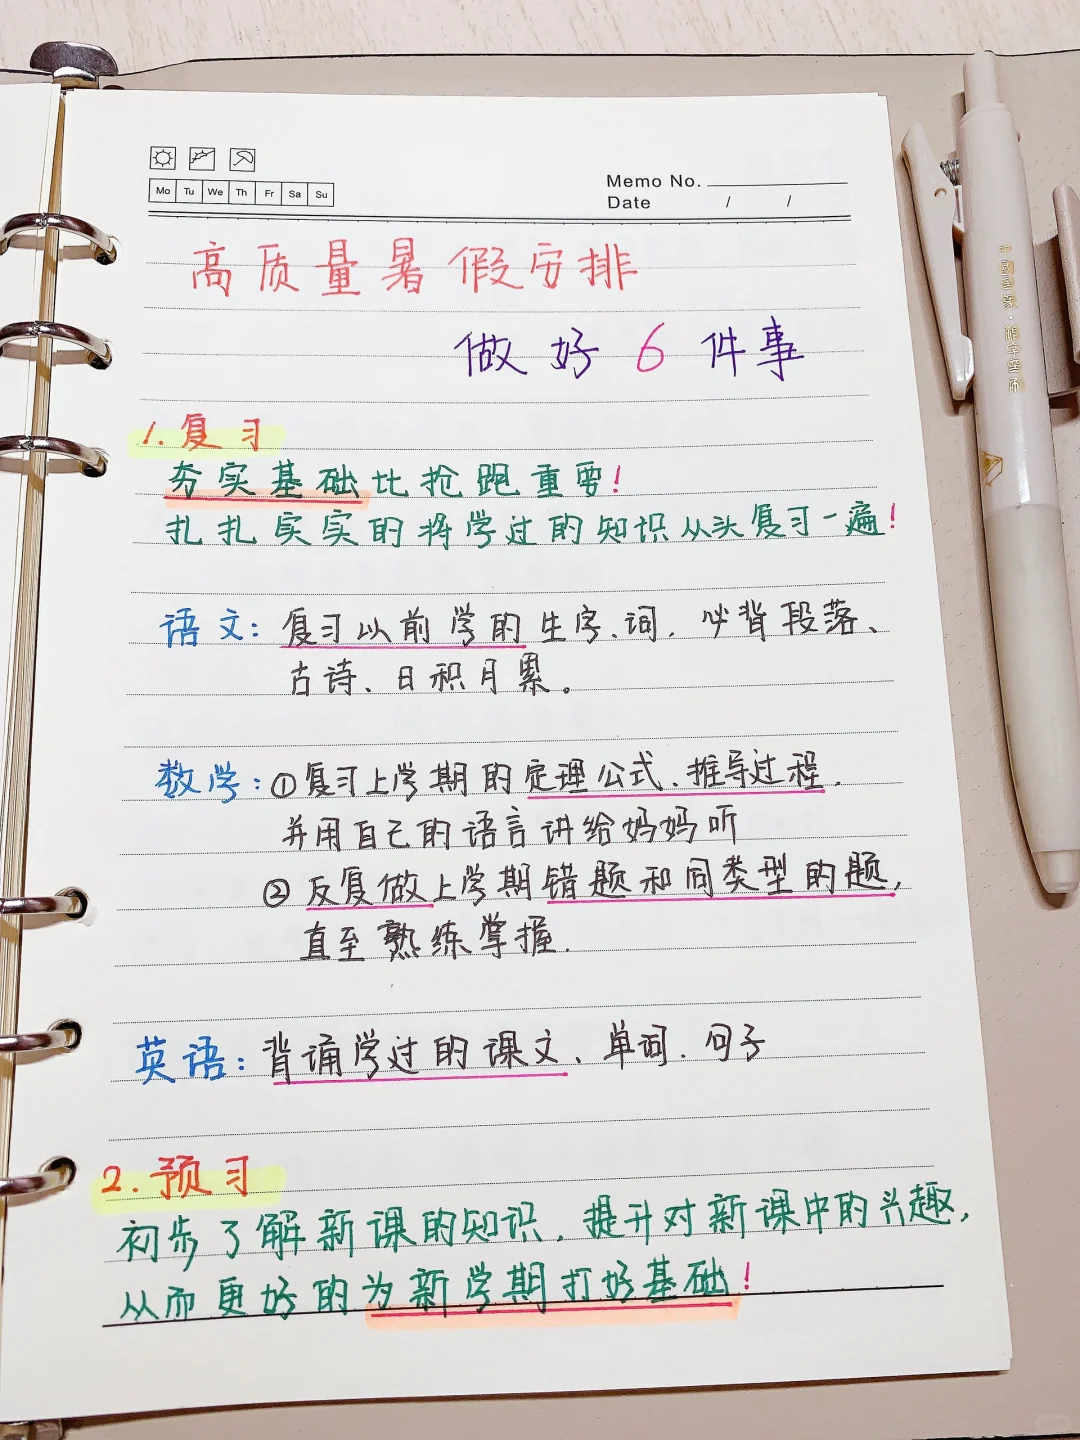 Mo Tu We Th Fr Sa Su
Memo No.
Date / /
高质量暑假安排
做好6件事
1.复习
夯实基础比抢跑重要!
扎扎实实的将学过的知识从头复习一遍!
语文:复习以前学的生字、词.必背段落、
古诗、日积月累。
数学:①复习上学期的定理公式、推导过程.
并用自己的语言讲给妈妈听
②反复做上学期错题和同类型的题,
直至熟练掌握.
英语:背诵学过的课文、单词.句子
2.预习
初步了解新课的知识.提升对新课中的兴趣,
从而更好的为新学期打好基础!